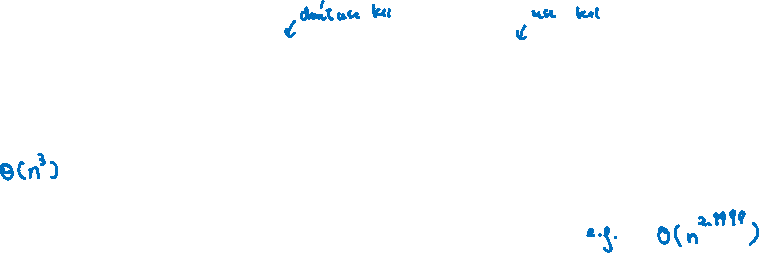 don't use k+1 use k+1
Θ(n³)
e.g. O(n^2.9999)